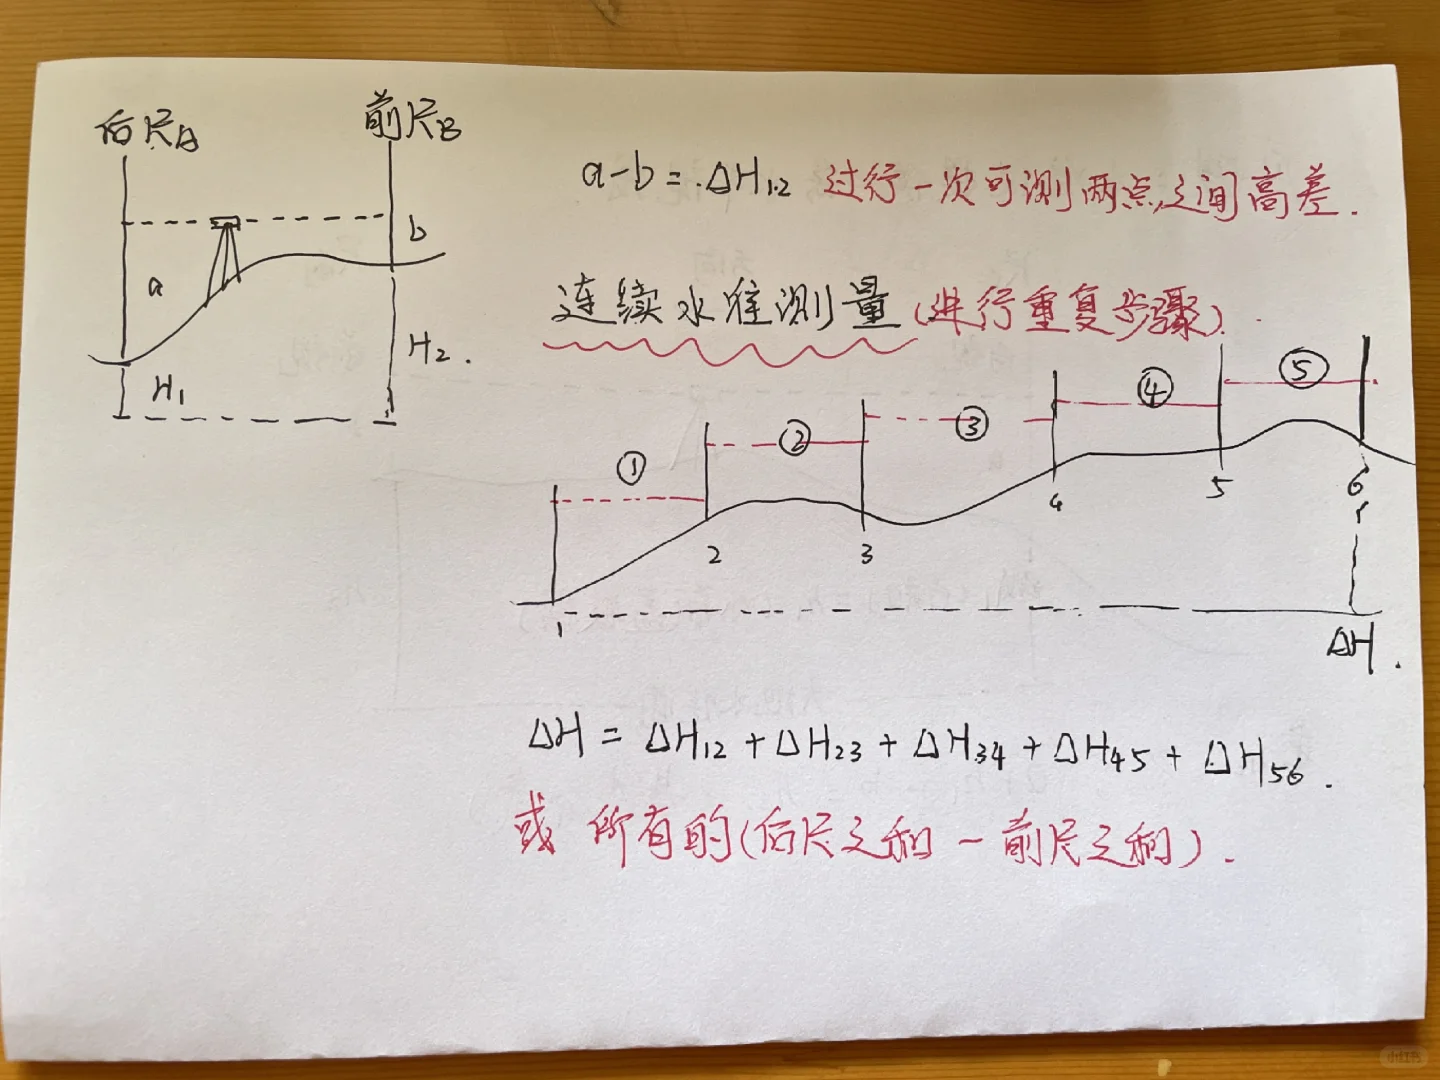 后尺A
前尺B
a
b
H₁
H₂.
a-b=.ΔH₁.₂ 过行一次可测两点之间高差.
连续水准测量(进行重复步骤).
① ② ③ ④ ⑤
1 2 3 4 5 6
ΔH.
ΔH = ΔH₁₂ + ΔH₂₃ + ΔH₃₄ + ΔH₄₅ + ΔH₅₆.
或 所有的(后尺之和 - 前尺之和).
小红书